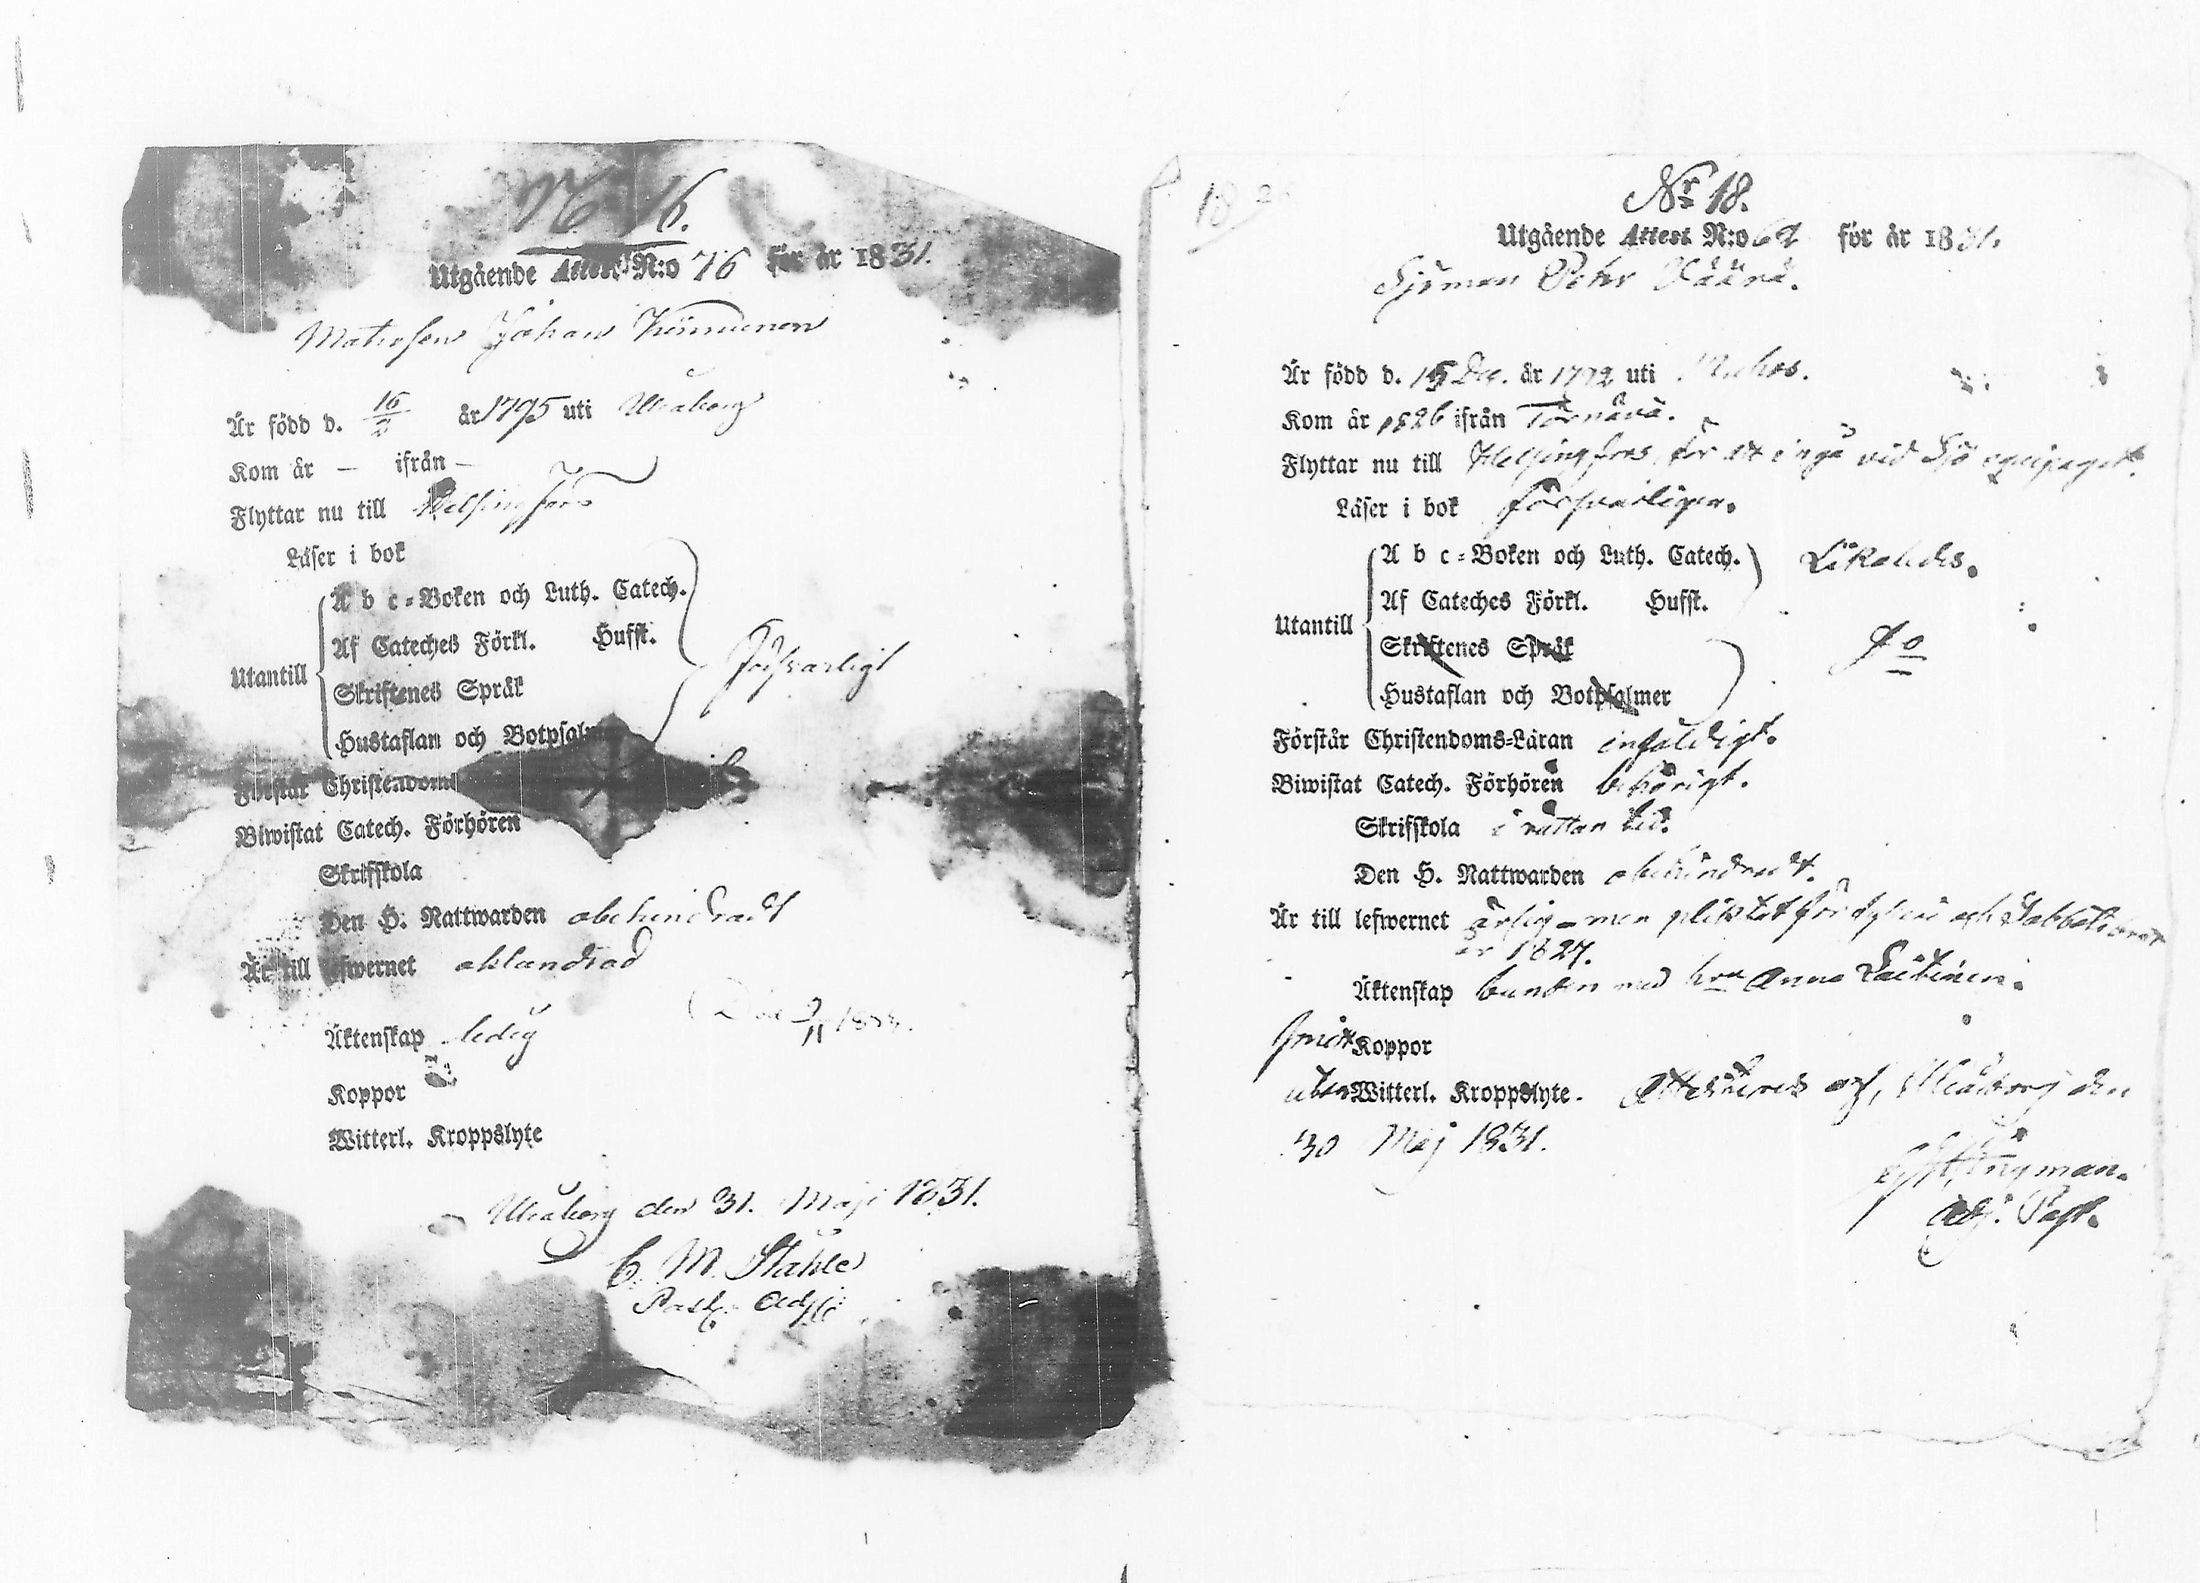 N:o 16.
Utgående Attest N:o 76 för år 1831.
Matrosen Johan Kinnunen
Är född d. 16/2 år 1795 uti Uleåborg
Kom år — ifrån —
Flyttar nu till Helsingfors
Läser i bok
A b c-Boken och Luth. Catech.
Af Cateches Förkl. Husst.
Utantill
Skriftenes Språk
Försvarligt
Hustaflan och Botpsalmer
Förstår Christendoms
Biwistat Catech. Förhören
Skrifskola
Den H. Nattwarden obehindradt
Är till lefwernet oklandrad
Äktenskap ledig
Död 9/11
Koppor
Witterl. Kroppslyte
Uleåborg den 31. Maji 1831.
C. M. Ståhle
Past. Adj.
18
Nr 18.
Utgående Attest N:o 62 för år 1831.
Sjöman Pehr Määrä.
Är född d. 15 Dec. år 1792 uti Muhos.
Kom år 1826 ifrån Törnävä.
Flyttar nu till Helsingfors för att ingå vid Sjö equipaget.
Läser i bok försvarligen.
A b c-Boken och Luth. Catech. Likaledes.
Af Cateches Förkl. Husst.
Utantill
Skriftenes Språk
do
Hustaflan och Botpsalmer
Förstår Christendoms-Läran enfaldigt.
Biwistat Catech. Förhören behörigt.
Skrifskola i rättan tid.
Den H. Nattwarden obehindradt.
Är till lefwernet ärlig - men pliktat för och Sabbatsbrott
år 1827.
Äktenskap bunden med hru Anna Laitinen.
haft Koppor
utan Witterl. Kroppslyte. Attesteras af, Uleåborg den
30 Maj 1831.
Ingman.
Adj. Past.